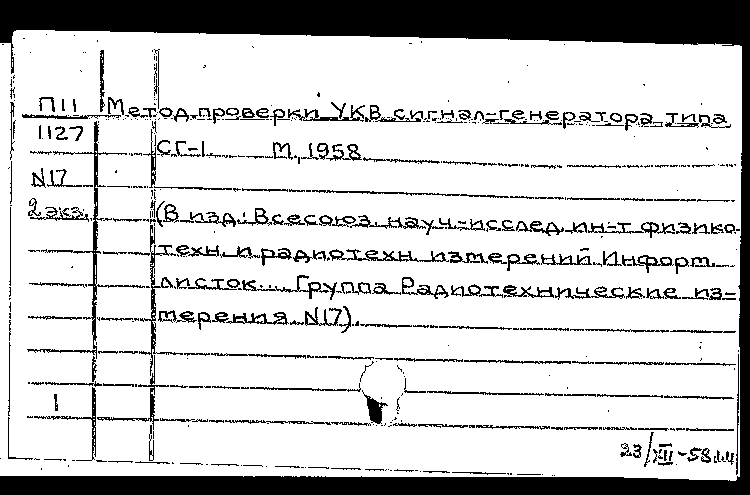 П11 Метод проверки УКВ сигнал-генератора типа
1127
СГ-1. М, 1958
N17
2 экз. (В изд.: Всесоюз. науч-исслед. ин-т физико-
техн. и радиотехн. измерений. Информ.
листок... Группа Радиотехнические из-
мерения. N17).
1
23/XII-58